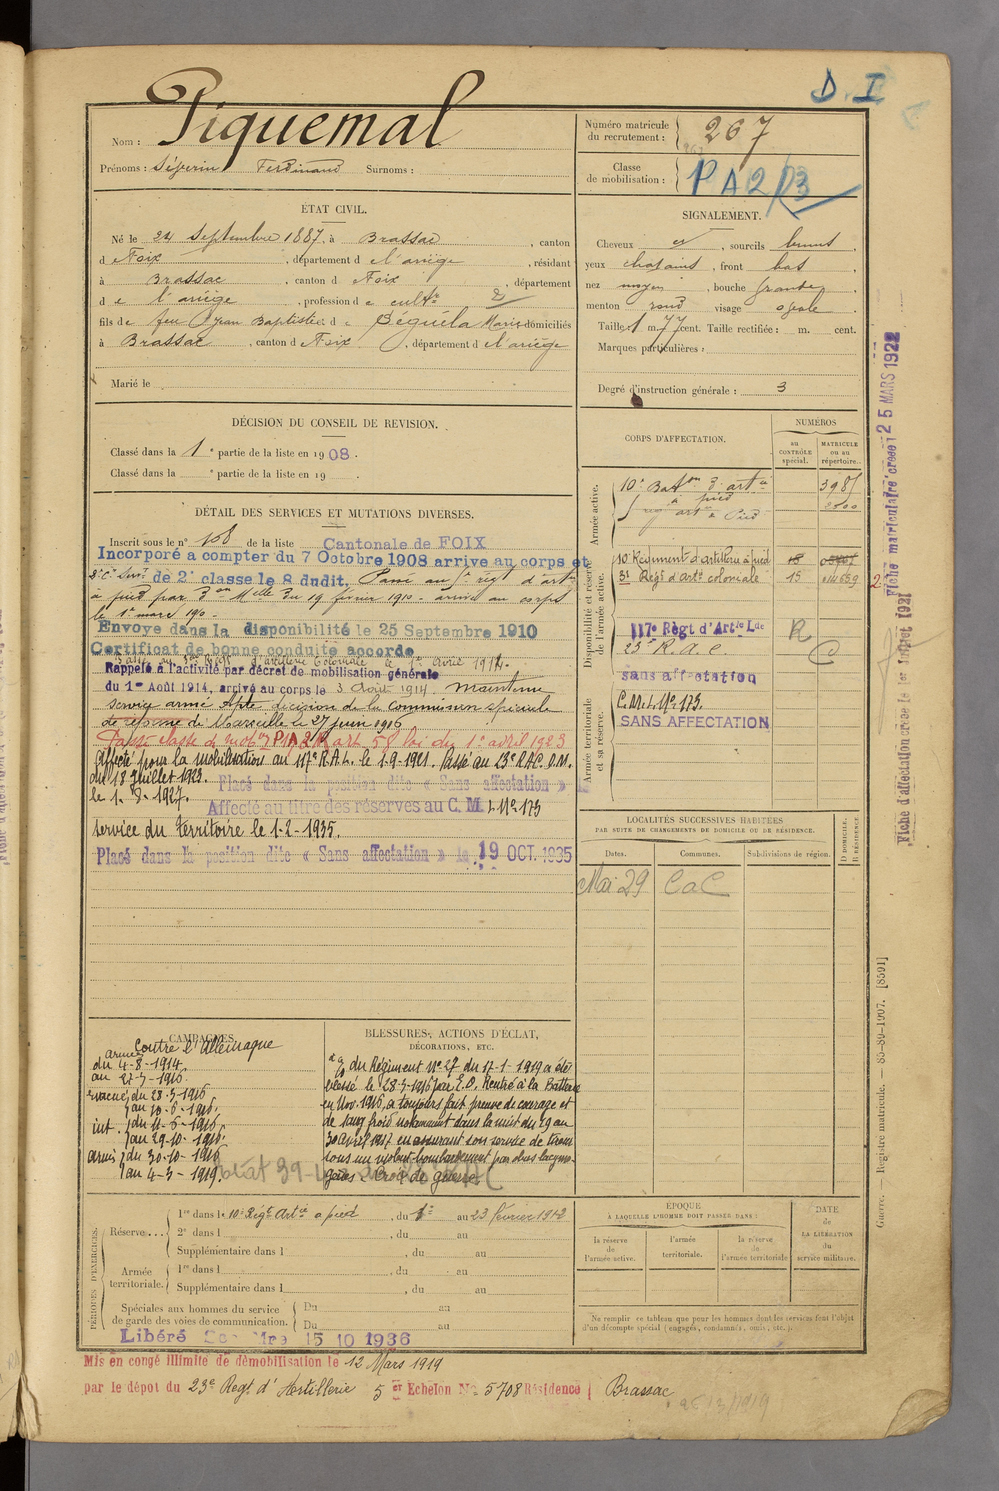 D. I
Nom : Piquemal
Prénoms : Séverin Ferdinand Surnoms :
Numéro matricule du recrutement : 267
Classe de mobilisation : PA2/23
ÉTAT CIVIL.
Né le 24 Septembre 1887, à Brassac, canton
d e Foix, département d e l'ariège, résidant
à Brassac, canton d e Foix, département
d e l'ariège, profession d e cultr
fils de feu Jean Baptiste et d e Séguéla Marie domiciliés
à Brassac, canton d e Foix, département d e l'ariège
Marié le
SIGNALEMENT.
Cheveux et, sourcils bruns.
yeux chatains, front bas
nez moyen, bouche grande,
menton rond visage ovale.
Taille 1 m. 77 cent. Taille rectifiée : m. cent.
Marques particulières :
Degré d'instruction générale : 3
DÉCISION DU CONSEIL DE REVISION.
Classé dans la 1e partie de la liste en 1908.
Classé dans la e partie de la liste en 19
DÉTAIL DES SERVICES ET MUTATIONS DIVERSES.
Inscrit sous le n° 108 de la liste Cantonale de FOIX
Incorporé a compter du 7 Octobre 1908 arrive au corps et
2e Cr Servt de 2e classe le 8 dudit, Passé au 5e régt d'artie
à pied par 3on Melle du 19 février 1910. arrivé au corps
le 1er mars 1910.
Envoye dans la disponibilité le 25 Septembre 1910
Certificat de bonne conduite accorde
Passé au 5me Régt d'artillerie Coloniale le 1er Avril 1914.
Rappelé à l'activité par décret de mobilisation générale
du 1er Août 1914, arrivé au corps le 3 Août 1914. Maintenu
service armé Apte décision de la Commission spéciale
de réforme de Marseille le 27 juin 1916
Passé classe de mobon PA2/23 art 58 loi du 1er avril 1923
Affecté pour la mobilisation au 117e R.A.L. le 1.9.1921. Passé au 23e R.A.C. D.M.
du 18 Juillet 1923. Placé dans la position dite « Sans affectation »
le 1.8.1927. Affecté au titre des réserves au C. M. L No 173
service du territoire le 1-2-1935.
Placé dans la position dite « Sans affectation » le 19 OCT. 1935
CORPS D'AFFECTATION.
NUMÉROS
au CONTRÔLE spécial.
MATRICULE ou au répertoire.
Armée active.
10e Baton d'artie à pied 3985
5e rég artie à Pied 2500
Disponibilité et réserve de l'armée active.
10e Régiment d'artillerie à pied 18
5e Régt d'artie coloniale 15 014659
117e Règt d'Artie Lde R
23e R.A.C. C
sans affectation
Armée territoriale et sa réserve.
C.M.L No 173.
SANS AFFECTATION
Fiche matriculaire créée l 25 MARS 1922
Fiche d'affectation créée le 1er 1921
LOCALITÉS SUCCESSIVES HABITÉES
PAR SUITE DE CHANGEMENTS DE DOMICILE OU DE RÉSIDENCE.
D DOMICILE. R RÉSIDENCE
Dates. Communes. Subdivisions de région.
Mai 29 CaC
Guerre. — Registre matricule. — 85-89-1907. [8591]
CAMPAGNES.
Contre l'Allemagne
armée
du 4-8-1914
au 27-5-1916
évacué du 28-5-1916
au 10-6-1916
int. du 11-6-1916
au 29-10-1916
armée du 30-10-1916
au 4-3-1919.
BLESSURES, ACTIONS D'ÉCLAT,
DÉCORATIONS, ETC.
du Régiment No 27 du 17-1-1919 a été
blessé le 28-5-1916 par E.O. Rentré à la Batterie
en Nov. 1916, a toujours fait preuve de courage et
de sang froid notamment dans la nuit du 29 au
30 Avril 1917 en assurant son service de tirant
sous un violent bombardement par obus lacrymo-
gènes. Croix de guerre
PÉRIODES D'EXERCICES.
Réserve... 1re dans le 10e Régt Artie a pied, du 1er au 23 février 1912
2e dans l, du au
Supplémentaire dans l, du au
Armée territoriale. 1re dans l, du au
Supplémentaire dans l, du au
Spéciales aux hommes du service Du au
de garde des voies de communication. Du au
ÉPOQUE
À LAQUELLE L'HOMME DOIT PASSER DANS :
la réserve de l'armée active.
l'armée territoriale.
la réserve de l'armée territoriale
DATE de LA LIBÉRATION du service militaire.
Ne remplir ce tableau que pour les hommes dont les services font l'objet
d'un décompte spécial (engagés, condamnés, omis, etc.).
Libéré 15 10 1936
Mis en congé illimité de démobilisation le 12 Mars 1919
par le dépot du 23e Regt d'Artillerie 5 er Echelon No 5708 Résidence Brassac